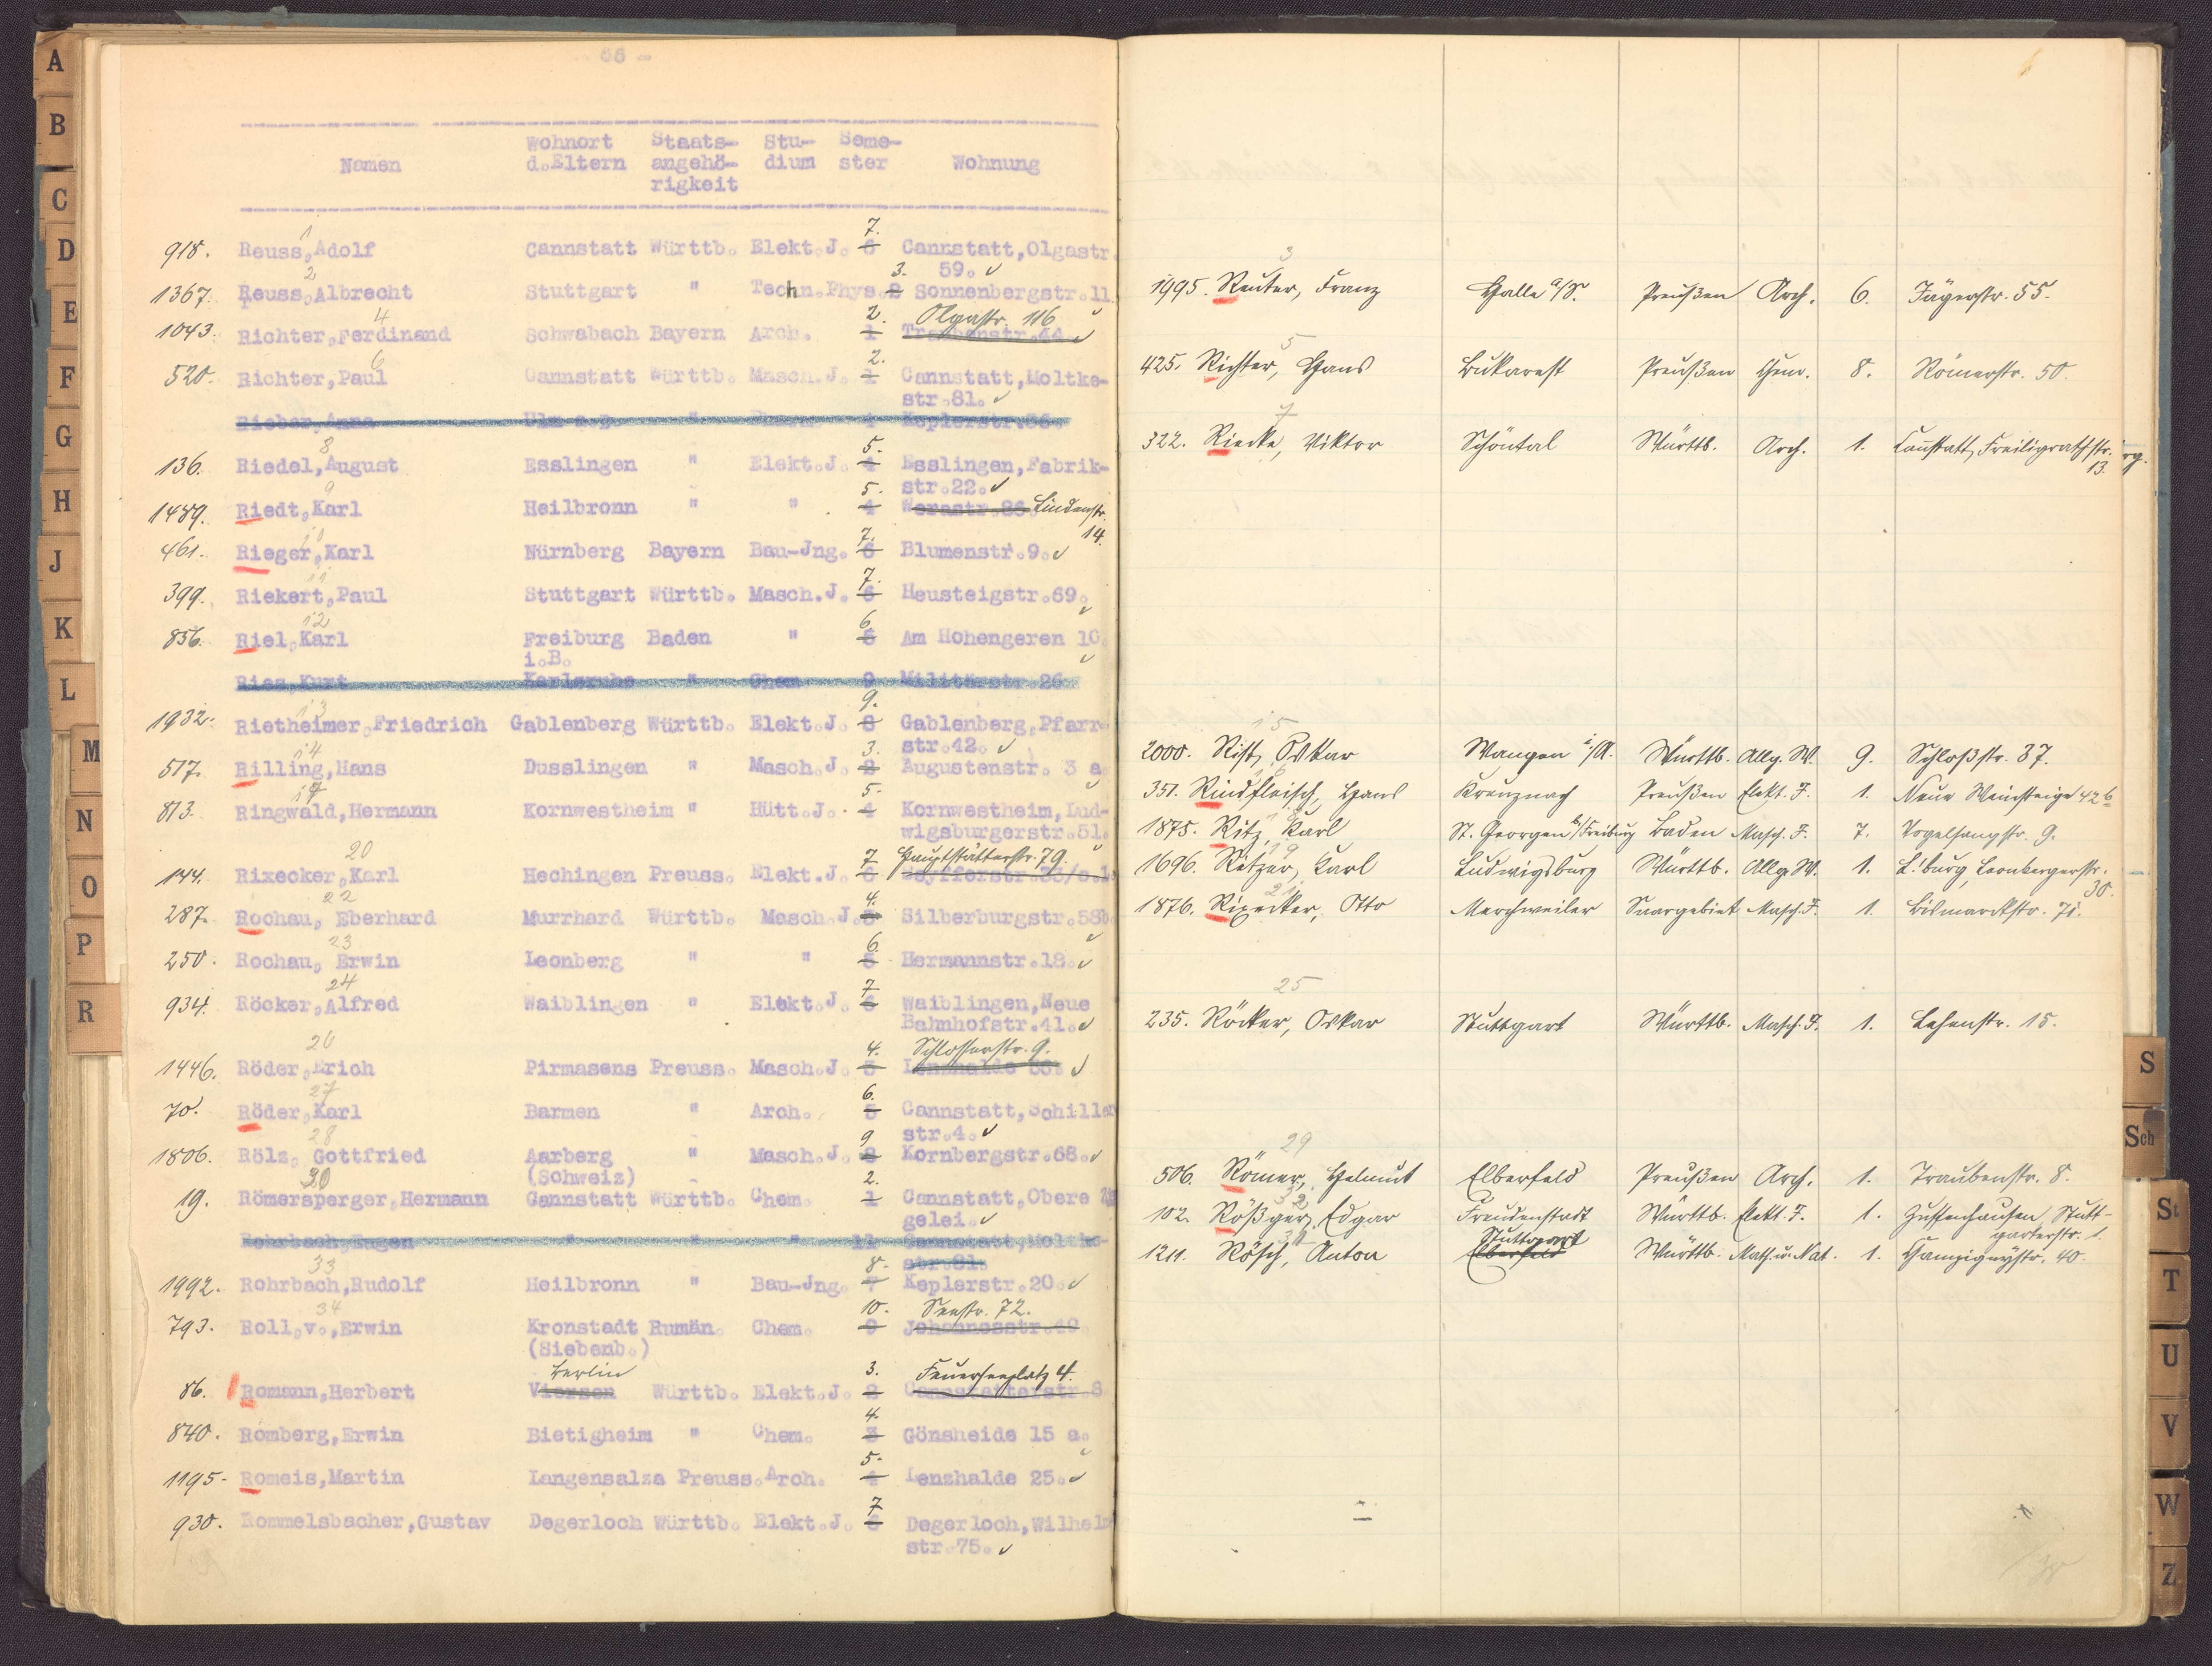 66 -
Wohnort Staats- Stu- Seme-
Namen d.Eltern angehö- dium ster Wohnung
rigkeit
1
7.
918. Reuss, Adolf Cannstatt Württb. Elekt.J. 6 Cannstatt, Olgastr.
2 3. 59. ✓
1367. Reuss, Albrecht Stuttgart " Techn.Phys. 2 Sonnenbergstr. 11
4 2. Olgastr. 116
1043. Richter, Ferdinand Schwabach Bayern Arch. 1 Traubenstr. 44 ✓
6 2.
520. Richter, Paul Cannstatt Württb. Masch.J. 1 Cannstatt, Moltke-
str. 81. ✓
Rieber, Anna Ulm a.D. " 4 Keplerstr. 36
8 5.
136. Riedel, August Esslingen " Elekt.J. 4 Esslingen, Fabrik-
9 5. str. 22. ✓
1489. Riedt, Karl Heilbronn " " 4 Werastr. 26 Lindenstr.
10 7. 14.
461. Rieger, Karl Nürnberg Bayern Bau-Jng. 6 Blumenstr. 9. ✓
11 7.
399. Riekert, Paul Stuttgart Württb. Masch.J. 6 Heusteigstr. 69.
12 6 ✓
856. Riel, Karl Freiburg Baden " 5 Am Hohengeren 10
i.B. ✓
Ries, Kurt Karlsruhe " Chem 9 Militärstr. 26
13 9.
1932. Rietheimer, Friedrich Gablenberg Württb. Elekt.J. 8 Gablenberg, Pfarr-
14 3. str. 42. ✓
517. Rilling, Hans Dusslingen " Masch.J. 2 Augustenstr. 3 a
17 5. ✓
813. Ringwald, Hermann Kornwestheim " Hütt.J. 4 Kornwestheim, Lud-
wigsburgerstr. 51.
20 7 Hauptstätterstr. 79. ✓
144. Rixecker, Karl Hechingen Preuss. Elekt.J. 6
22 4.
287. Rochau, Eberhard Murrhard Württb. Masch.J. 3 Silberburgstr. 58b
23 6. ✓
250. Rochau, Erwin Leonberg " " 5 Hermannstr. 18. ✓
24 7
934. Röcker, Alfred Waiblingen " Elekt.J. 6 Waiblingen, Neue
Bahnhofstr. 41. ✓
26 4. Schlosserstr. 9.
1446. Röder, Erich Pirmasens Preuss. Masch.J. 3 Lenzhalde 66. ✓
27 6.
70. Röder, Karl Barmen " Arch. 5 Cannstatt, Schiller
28 9 str. 4. ✓
1806. Rölz, Gottfried Aarberg " Masch.J. 8 Kornbergstr. 68. ✓
30 (Schweiz) 2.
19. Römersperger, Hermann Cannstatt Württb. Chem. 1 Cannstatt, Obere Zie
gelei. ✓
Rohrbach, Eugen " " " 11 Cannstatt, Moltke-
33 8. str. 81.
1992. Rohrbach, Rudolf Heilbronn " Bau-Jng. 7 Keplerstr. 20. ✓
34 10. Seestr. 72.
793. Roll, v., Erwin Kronstadt Rumän. Chem. 9 Johannesstr. 49
(Siebenb.)
Berlin 3. Feuerseeplatz 4.
86. Romann, Herbert Viersen Württb. Elekt.J. 2 Cannstatterstr. 8
4.
840. Romberg, Erwin Bietigheim " Chem. 3 Gänsheide 15 a.
5. ✓
1195. Romeis, Martin Langensalza Preuss. Arch. 4 Lenzhalde 25. ✓
7
930. Rommelsbacher, Gustav Degerloch Württb. Elekt.J. 6 Degerloch, Wilhelm
str. 75. ✓
3
1995. Reuter, Franz Halle a/S. Preußen Arch. 6. Jägerstr. 55.
5
425. Richter, Hans Bukarest Preußen Chem. 8. Römerstr. 50.
7
322. Riecke, Viktor Schöntal Württb. Arch. 1. Cannstatt, Freiligrathstr.
13.
15
2000. Rist, Oskar Wangen i/A. Württb. Allg. W. 9. Schloßstr. 37.
16
351. Rindfleisch, Hans Kreuznach Preußen Elekt. J. 1. Neue Weinsteige 42b
18
1875. Ritz, Karl St. Georgen b/Freiburg Baden Masch. J. 7. Vogelsangstr. 9.
19
1696. Ritzer, Karl Ludwigsburg Württb. Allg. W. 1. L'burg, Leonbergerstr.
21 30.
1876. Rixecker, Otto Merchweiler Saargebiet Masch. J. 1. Bismarckstr. 71.
25
235. Röcker, Oskar Stuttgart Württb. Masch. J. 1. Lehenstr. 15.
29
506. Römer, Helmut Elberfeld Preußen Arch. 1. Traubenstr. 8.
32
102. Rößger, Edgar Freudenstadt Württb. Elekt. J. 1. Zuffenhausen, Stutt-
31 Stuttgart garterstr. 1.
1211. Rösch, Anton Elberfeld Württb. Math. u. Nat. 1. Champignystr. 40.
A
B
C
D
E
F
G
H
J
K
L
M
N
O
P
R
S
Sch
St
T
U
V
W
Z